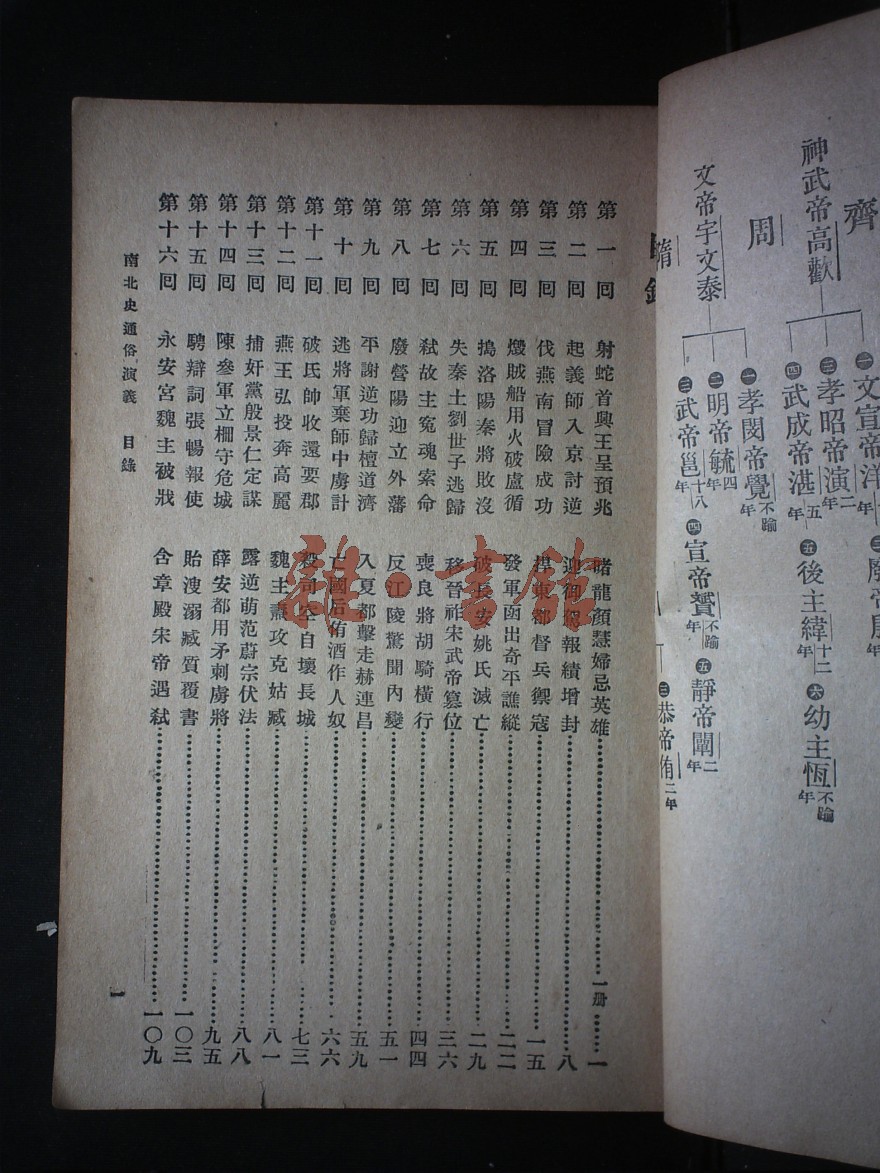 齊
神武帝高歡
㊀文宣帝洋
㊂孝昭帝演二年
㊃武成帝湛五年
㊄後主緯十二年
㊅幼主恆不踰年
周
文帝宇文泰
㊀孝閔帝覺不踰年
㊁明帝毓四年
㊂武帝邕十八年
㊃宣帝贇不踰年
㊄靜帝闡二年
㊂恭帝侑二年
第一回 射蛇首興王呈預兆 睹龍顏慧婦忌英雄 一册 一
第二回 起義師入京討逆 迎御駕報績增封 八
第三回 伐燕南冒險成功 捍東都督兵禦寇 一五
第四回 燬賊船用火破盧循 發軍函出奇平譙縱 二二
第五回 搗洛陽秦將敗沒 破長安姚氏滅亡 二九
第六回 失秦土劉世子逃歸 移晉祚宋武帝篡位 三六
第七回 弒故主冤魂索命 喪良將胡騎橫行 四四
第八回 廢營陽迎立外藩 反江陵驚聞內變 五一
第九回 平謝逆功歸檀道濟 入夏都擊走赫連昌 五九
第十回 逃將軍棄師中虜計 亡國后侑酒作人奴 六六
第十一回 破氐帥收還要郡 殺司空自壞長城 七三
第十二回 燕王弘投奔高麗 魏主燾攻克姑臧 八一
第十三回 捕奸黨殷景仁定謀 露逆萌范蔚宗伏法 八八
第十四回 陳參軍立柵守危城 薛安都用矛刺虜將 九五
第十五回 騁辯詞張暢報使 貽溲溺臧質覆書 一〇三
第十六回 永安宮魏主被戕 含章殿宋帝遇弒 一〇九
南北史通俗演義 目錄
一
雜·書館